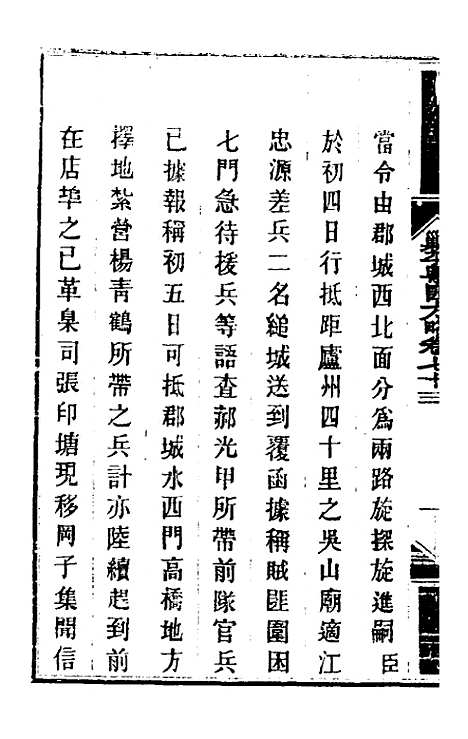 當令由郡城西北面分爲兩路旋探旋進嗣臣
於初四日行抵距廬州四十里之吳山廟適江
忠源差兵二名縋城送到覆函據稱賊匪圍困
七門急待援兵等語查郝光甲所帶前隊官兵
已據報稱初五日可抵郡城水西門高橋地方
擇地紮營楊青鶴所帶之兵計亦陸續趕到前
在店埠之已革臬司張印塘現移岡子集聞信